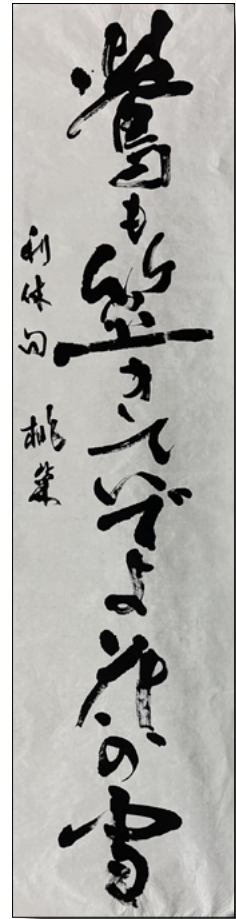 鶯も笠きていでよ花の雪
利休句 桃葉